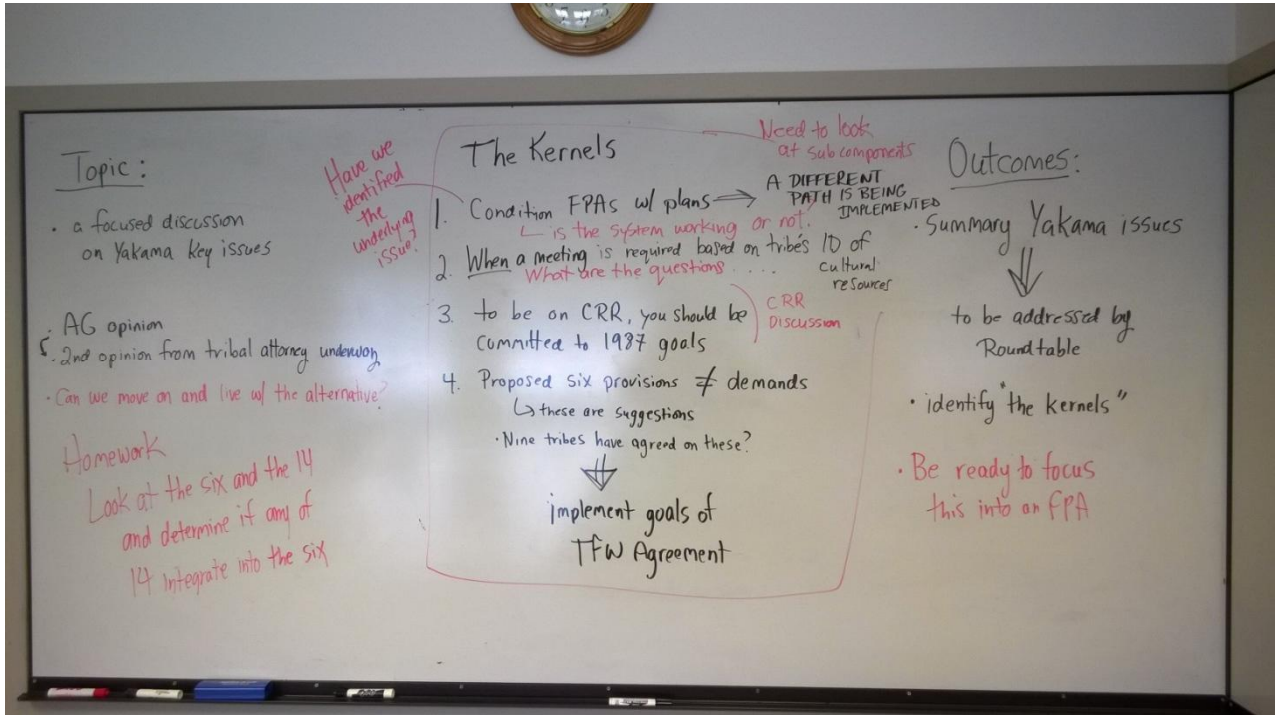 Topic:
• a focused discussion
on Yakama key issues
• AG opinion
5. 2nd opinion from tribal attorney underway
• Can we move on and live w/ the alternative?
Homework
Look at the six and the 14
and determine if any of
14 integrate into the six
Have we
identified
the
underlying
issue?
The Kernels
Need to look
at subcomponents
1. Condition FPAs w/ plans → A DIFFERENT
PATH IS BEING
IMPLEMENTED
is the system working or not?
2. When a meeting is required based on tribe's ID of
cultural
resources
What are the questions ....
3. to be on CRR, you should be
committed to 1987 goals
CRR
Discussion
4. Proposed six provisions ≠ demands
↳ these are suggestions
• Nine tribes have agreed on these?
implement goals of
TFW Agreement
Outcomes:
• Summary Yakama issues
to be addressed by
Roundtable
• identify "the kernels"
• Be ready to focus
this into an FPA